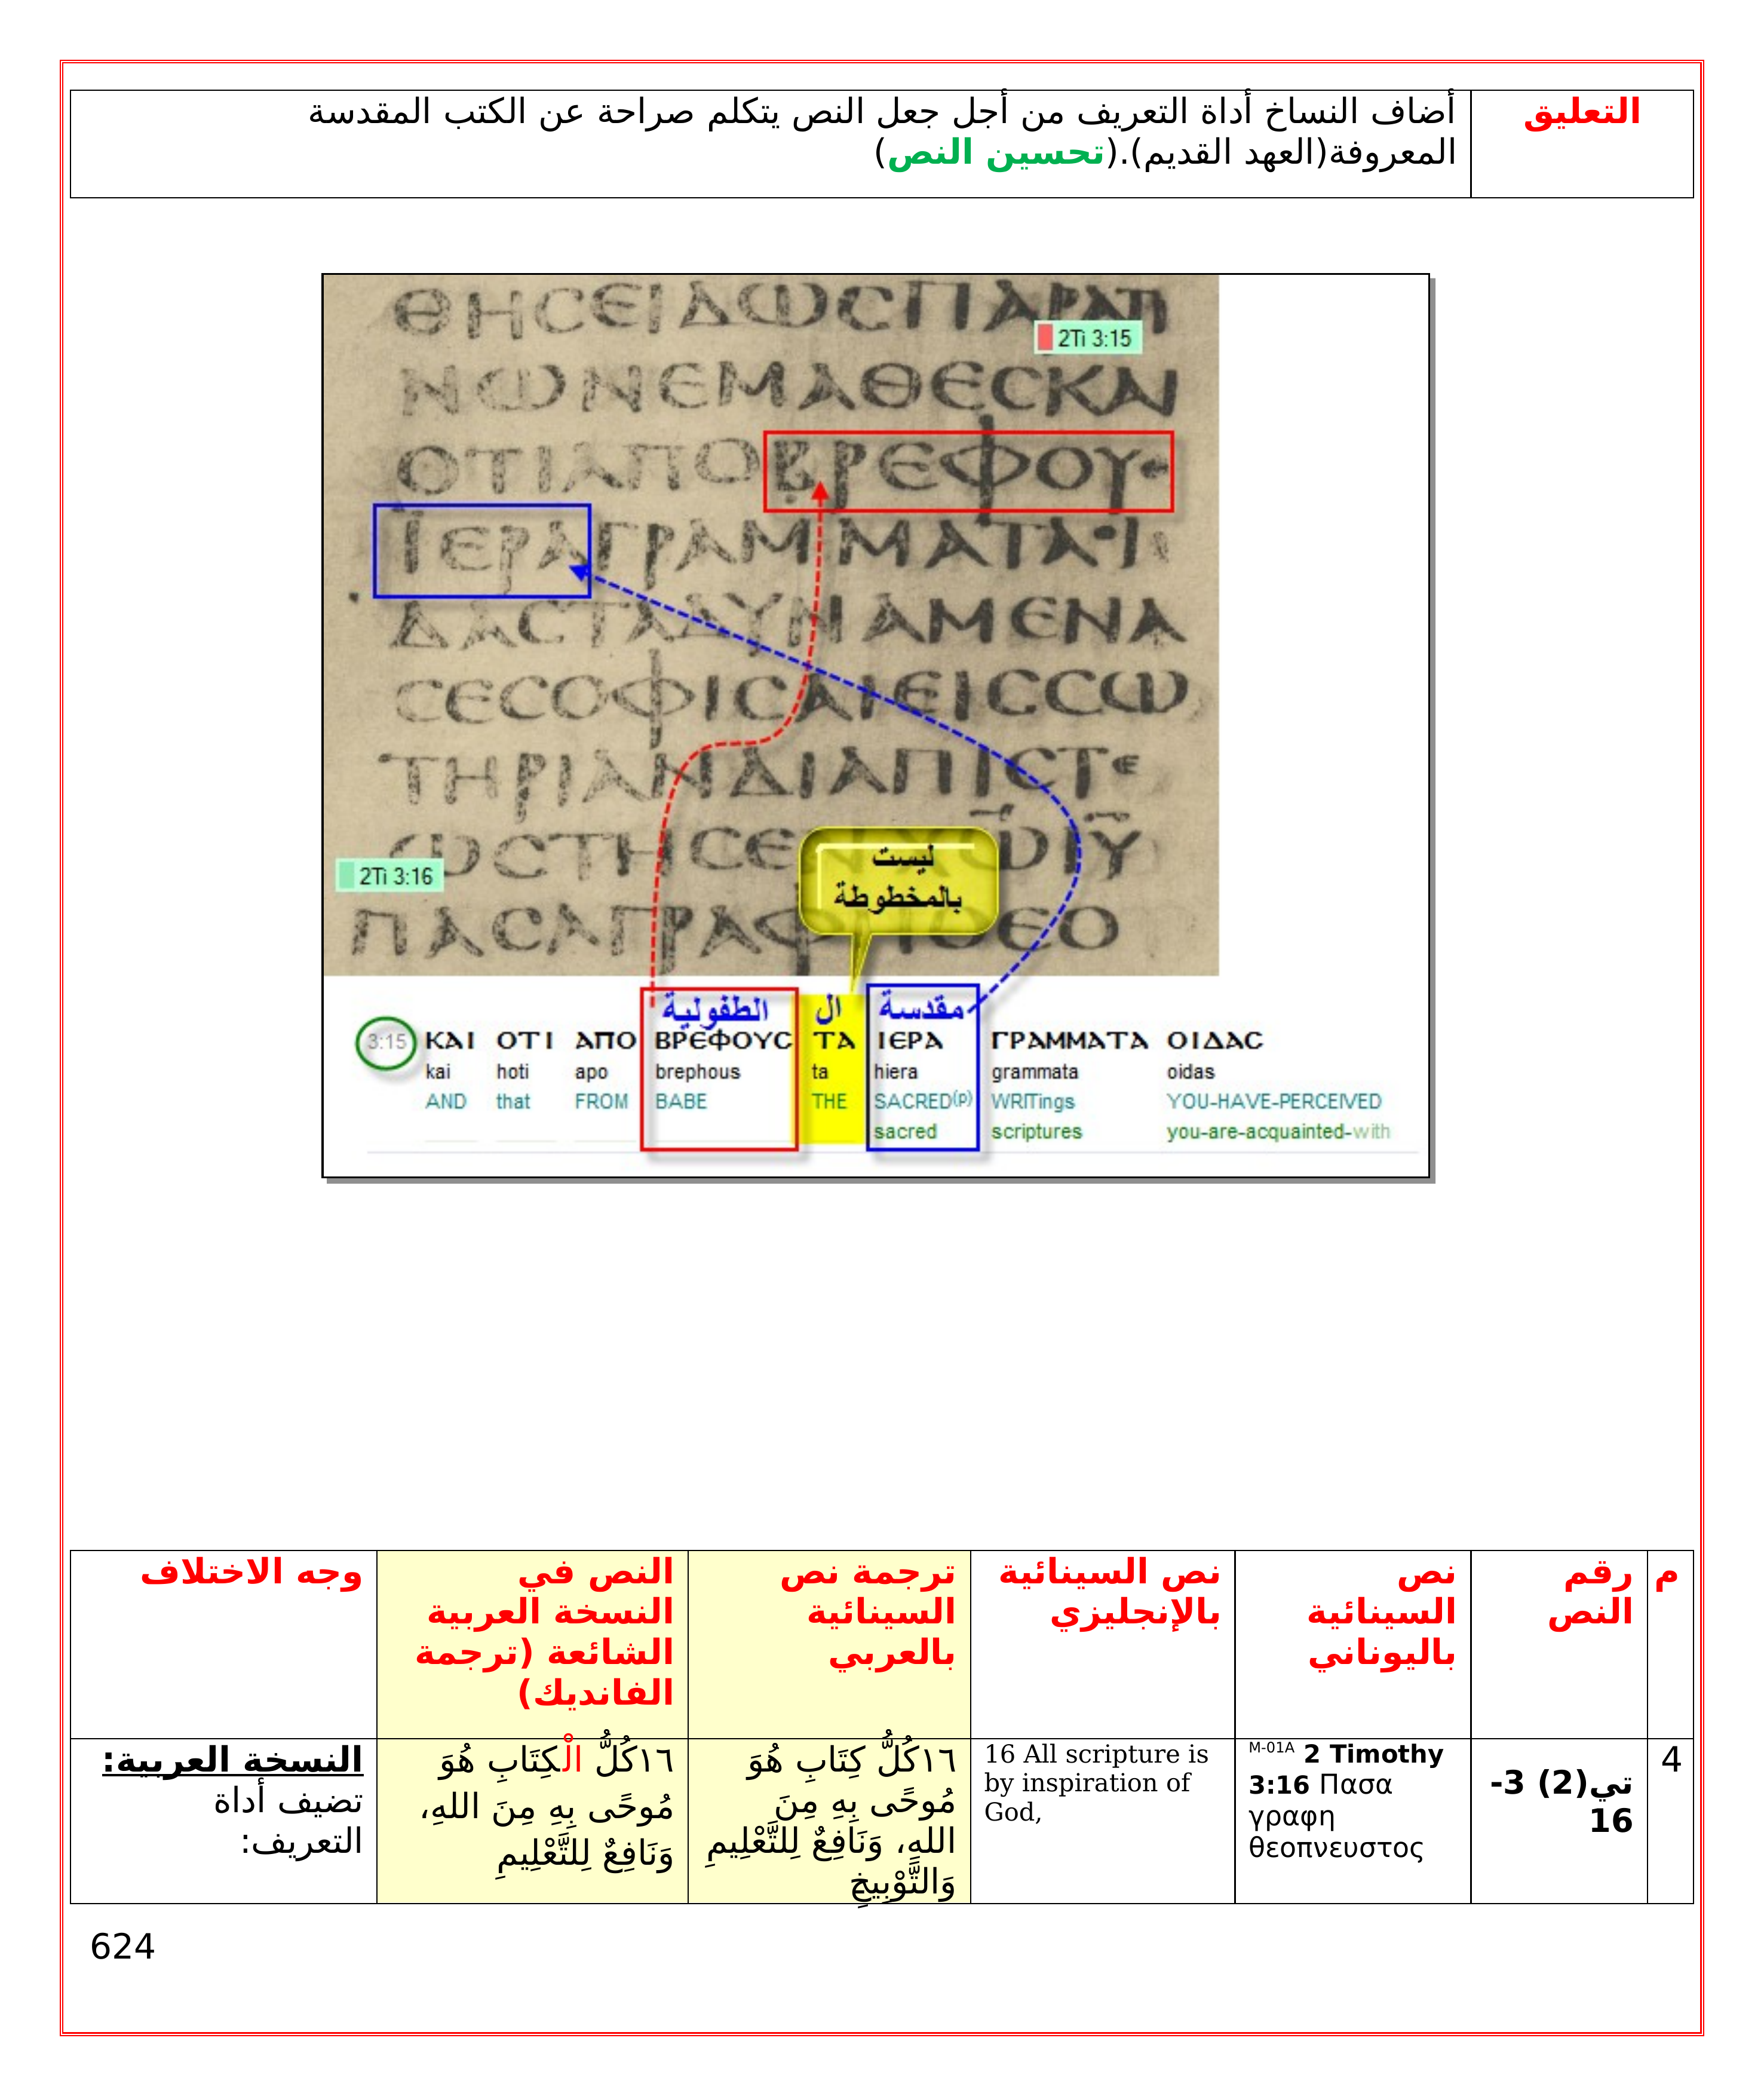 التعليق
أضاف النساخ أداة التعريف من أجل جعل النص يتكلم صراحة عن الكتب المقدسة
المعروفة(العهد القديم).(تحسين النص)
ΘΗϹΕΙΔΩϹΠΑΡΑΤΙ
2Ti 3:15
ΝΩΝΕΜΑΘΕϹΚΑΙ
ΟΤΙΑΠΟΒΡΕΦΟΥ
ΙΕΡΑΓΡΑΜΜΑΤΑ·Ι
ΔΑϹΤΑΔΥΝΑΜΕΝΑ
ϹΕϹΟΦΙϹΑΙΕΙϹϹΩ
ΤΗΡΙΑΝΔΙΑΠΙϹΤΕ
ΩϹΤΗϹΕΝΧΩΙΥ
ليست
بالمخطوطة
2Ti 3:16
ΠΑϹΑΓΡΑΦΗΘΕΟ
الطفولية ال مقدسة
3:15 ΚΑΙ ΟΤΙ ΑΠΟ ΒΡΕΦΟΥϹ ΤΑ ΙΕΡΑ ΓΡΑΜΜΑΤΑ ΟΙΔΑϹ
kai hoti apo brephous ta hiera grammata oidas
AND that FROM BABE THE SACRED(p) WRITings YOU-HAVE-PERCEIVED
sacred scriptures you-are-acquainted-with
م
رقم
النص
نص
السينائية
باليوناني
نص السينائية
بالإنجليزي
ترجمة نص
السينائية
بالعربي
النص في
النسخة العربية
الشائعة (ترجمة
الفانديك)
وجه الاختلاف
4
تي(2) 3-
16
M-01A 2 Timothy
3:16 Πασα
γραφη
θεοπνευστος
16 All scripture is
by inspiration of
God,
١٦كُلُّ كِتَابِ هُوَ
مُوحًى بِهِ مِنَ
اللهِ، وَنَافِعٌ لِلتَّعْلِيمِ
وَالتَّوْبِيخِ
١٦كُلُّ الْكِتَابِ هُوَ
مُوحًى بِهِ مِنَ اللهِ،
وَنَافِعٌ لِلتَّعْلِيمِ
النسخة العربية:
تضيف أداة
التعريف:
624